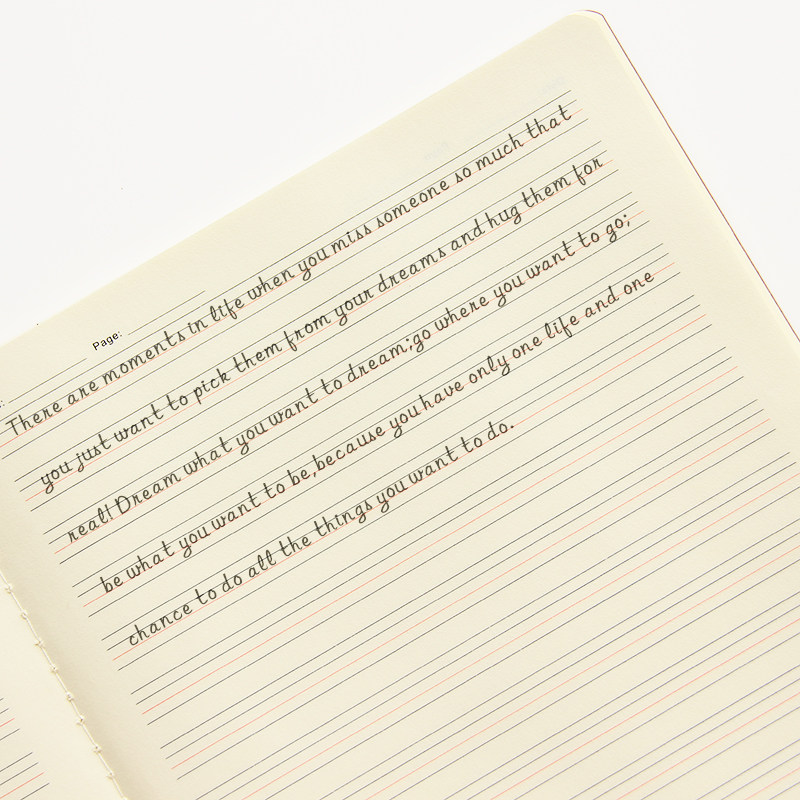 Page:
There are moments in life when you miss someone so much that
you just want to pick them from your dreams and hug them for
real! Dream what you want to dream;go where you want to go;
be what you want to be,because you have only one life and one
chance to do all the things you want to do.